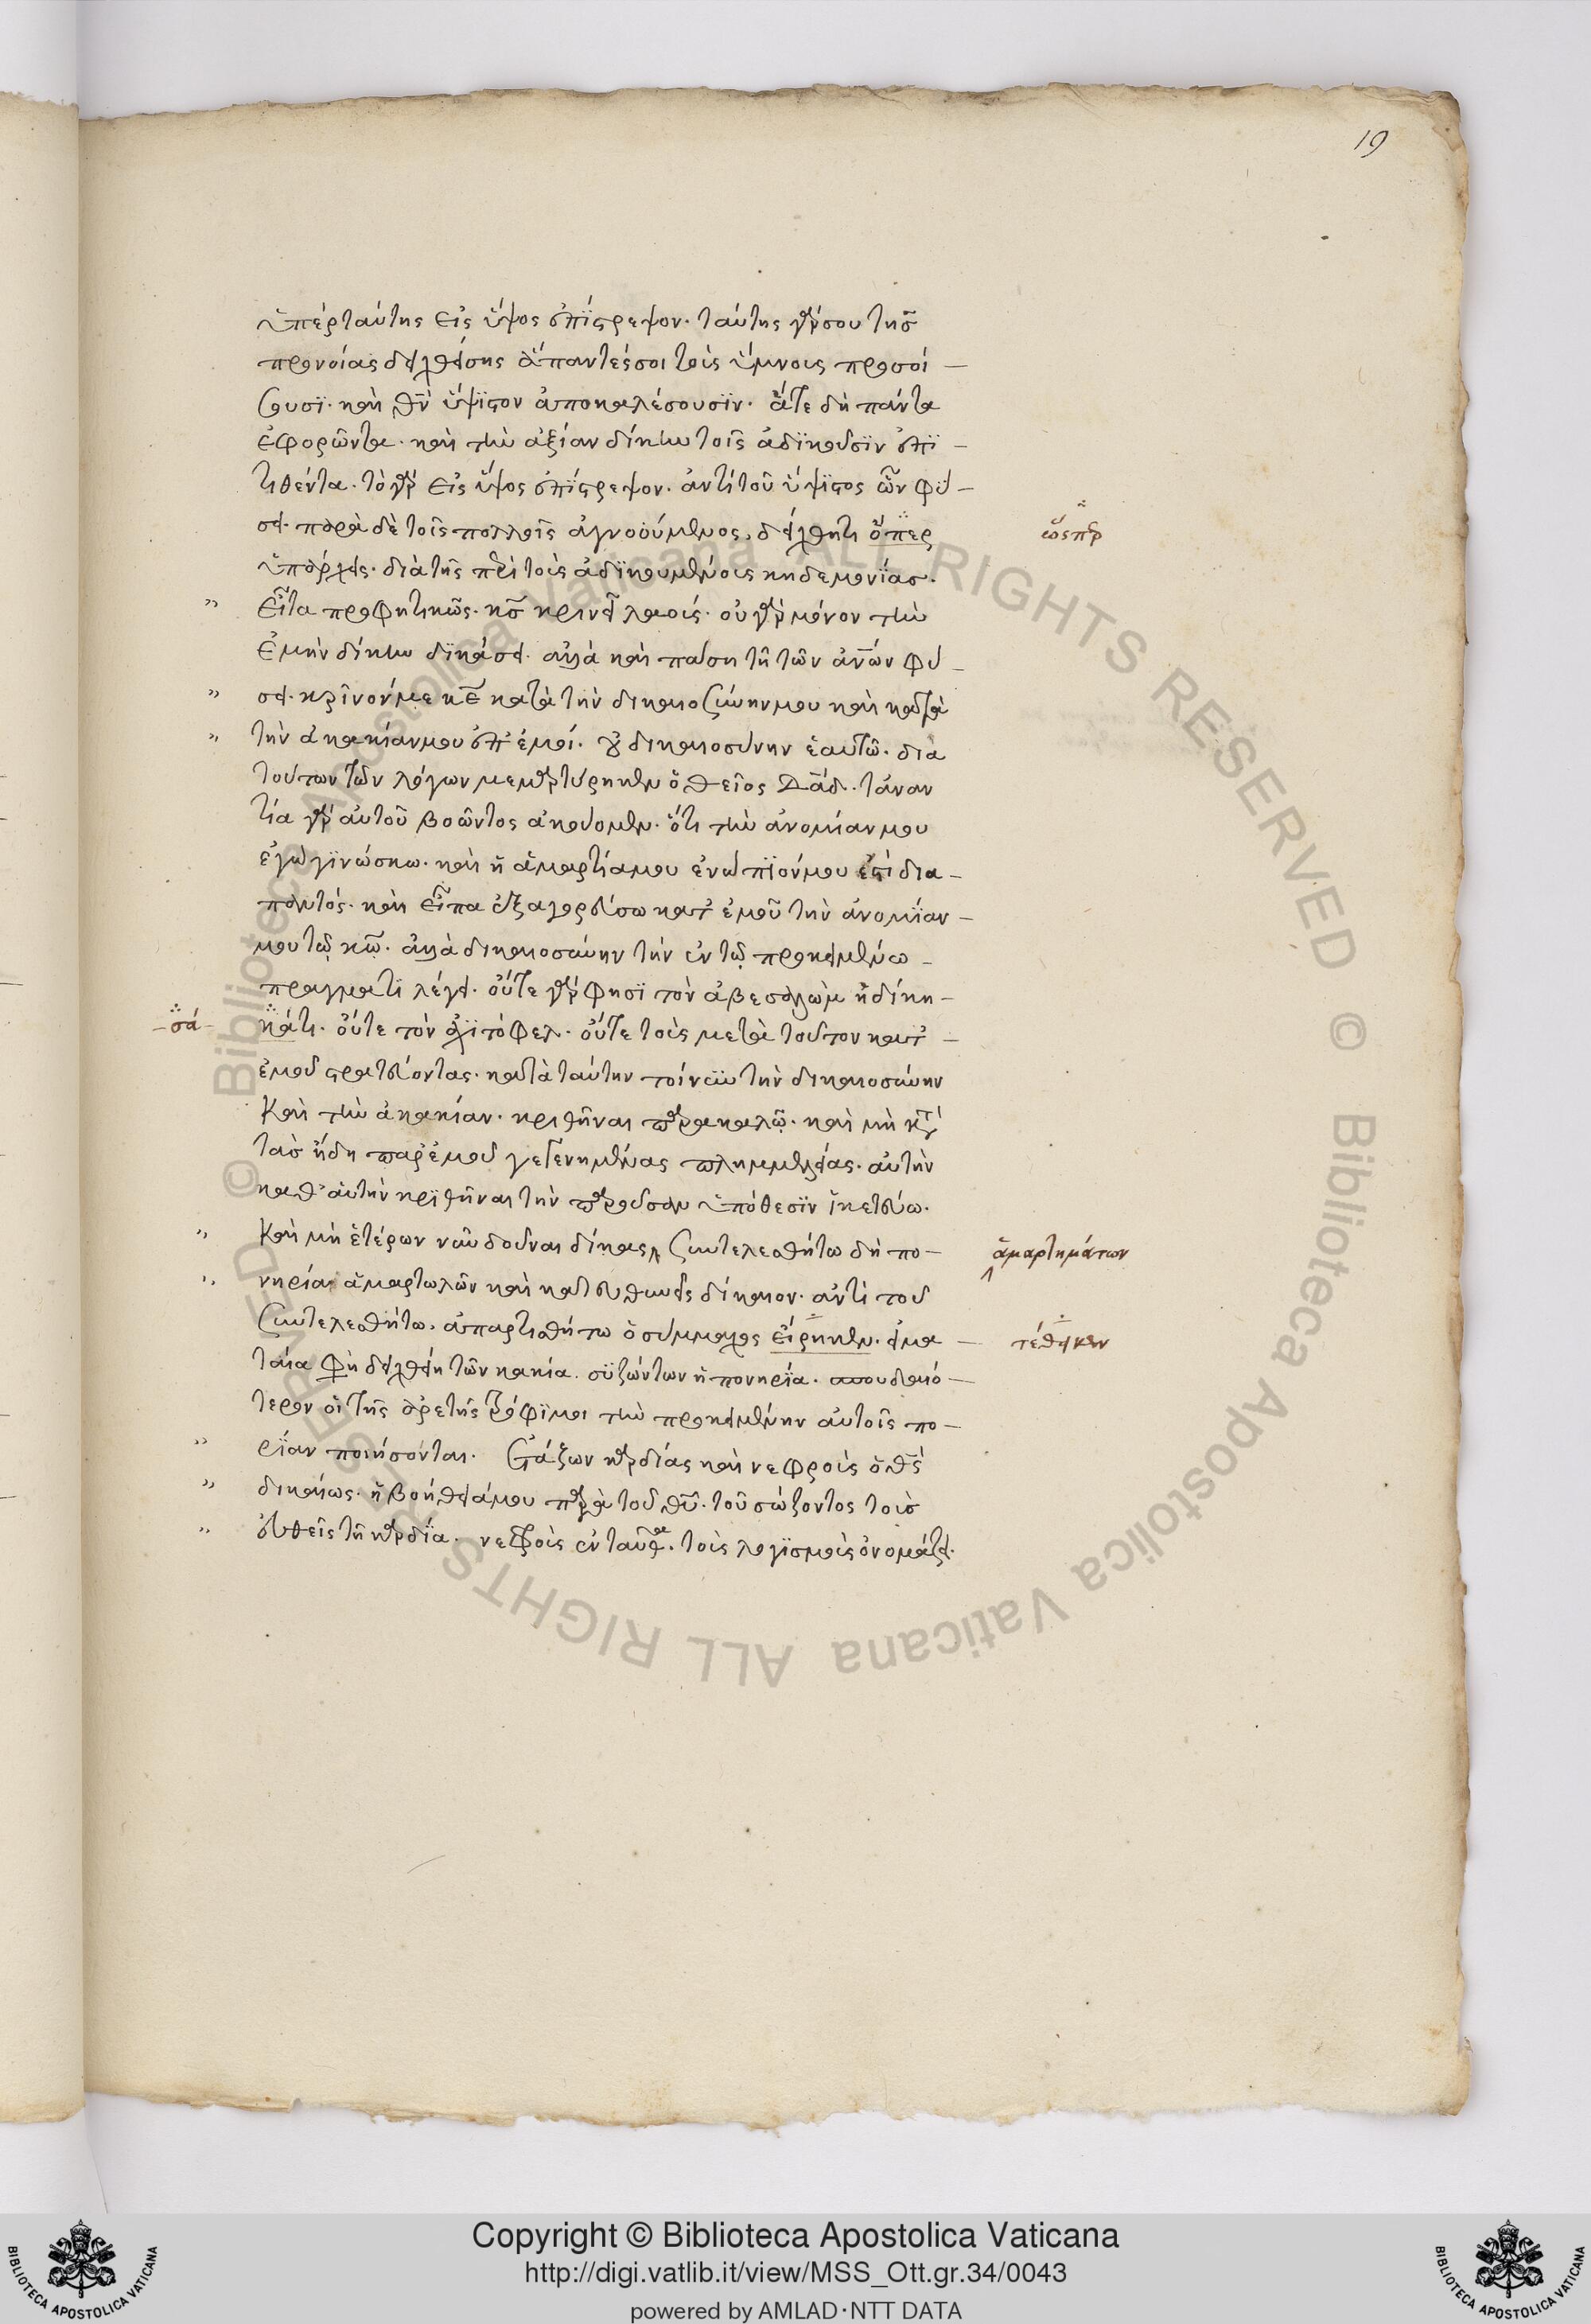 19
ὑπὲρ ταύτης εἰς ὕψος ἐπίστρεψον. ταύτης γάρ σου τῆς
προνοίας δειχθείσης ἅπαντές σοι τοὺς ὕμνους προσοί
σουσι. καὶ θν ὕψιστον ἀποκαλέσουσιν. ἅτε δὴ πάντα
ἐφορῶντα. καὶ τὴν ἀξίαν δίκην τοῖς ἀδικοῦσιν ἐπι
τιθέντα. τὸ γὰρ εἰς ὕψος ἐπίστρεψον. ἀντὶ τοῦ ὕψιστος ὢν φύ
σει. παρὰ δὲ τοῖς πολλοῖς ἀγνοούμενος, δείχθητι ὅπερ
ὥσπερ
ὑπάρχεις. διὰ τῆς περὶ τοὺς ἀδικουμένους κηδεμονίας.
Εἶτα προφητικῶς. κς κρινεῖ λαούς. οὐ γὰρ μόνον τὴν
ἐμὴν δίκην δικάσει. ἀλλὰ καὶ πάσῃ τῇ τῶν ανων φύ
σει. κρῖνόν με κε κατὰ τὴν δικαιοσύνην μου καὶ κατὰ
τὴν ἀκακίαν μου ἐπ' ἐμοί. οὐ δικαιοσύνην ἑαυτῶ. διὰ
τούτων τῶν λόγων μεμαρτύρηκεν ὁ θεῖος Δαδ. τἀναν
τία γὰρ αὐτοῦ βοῶντος ἀκούομεν. ὅτι τὴν ἀνομίαν μου
ἐγὼ γινώσκω. καὶ ἡ ἁμαρτία μου ἐνώπιόν μου ἐστὶ δια
παντός. καὶ εἶπα ἐξαγορεύσω κατ' ἐμοῦ τὴν ἀνομίαν
μου τῷ κω. ἀλλὰ δικαιοσύνην τὴν ἐν τῷ προκειμένω
πράγματι λέγει. οὔτε γάρ φησι τὸν ἀβεσαλὼμ ἠδίκη
σά
κάτι. οὔτε τὸν ἀχιτόφελ. οὔτε τοὺς μετὰ τούτον κατ'
ἐμοῦ στρατεύοντας. κατὰ ταύτην τοίνυν τὴν δικαιοσύνην
καὶ τὴν ἀκακίαν. κριθῆναι παρακαλῶ. καὶ μὴ κατὰ
τὰς ἤδη παρ' ἐμοῦ γεγενημένας πλημμελείας. αὐτὴν
καθ' αὑτὴν κριθῆναι τὴν παροῦσαν ὑπόθεσιν ἱκετεύω.
καὶ μὴ ἑτέρων νῦν δοῦναι δίκας, συντελεσθήτω δὴ πο
ἁμαρτημάτων
νηρία ἁμαρτωλῶν καὶ κατευθυνεῖς δίκαιον. ἀντὶ τοῦ
συντελεσθήτω. ἀπαρτισθήτω ὁ σύμμαχος εἴρηκεν. εἰ μα
τέθεικεν
ταία φη δειχθείη τῶν κακία. συζώντων ἡ πονηρία. σπουδαιό
τερον οἱ τῆς ἀρετῆς τρόφιμοι τὴν προκειμένην αὐτοῖς πο
ρίαν ποιήσονται. Ἐτάζων καρδίας καὶ νεφροὺς ὁ θς
δικαίως. ἡ βοήθειά μου παρὰ τοῦ θυ. τοῦ σώζοντος τοὺς
εὐθεῖς τῇ καρδία. νεφροὺς ἐνταῦθα. τοὺς λογισμοὺς ὀνομάζει.
Copyright © Biblioteca Apostolica Vaticana
http://digi.vatlib.it/view/MSS_Ott.gr.34/0043
powered by AMLAD·NTT DATA